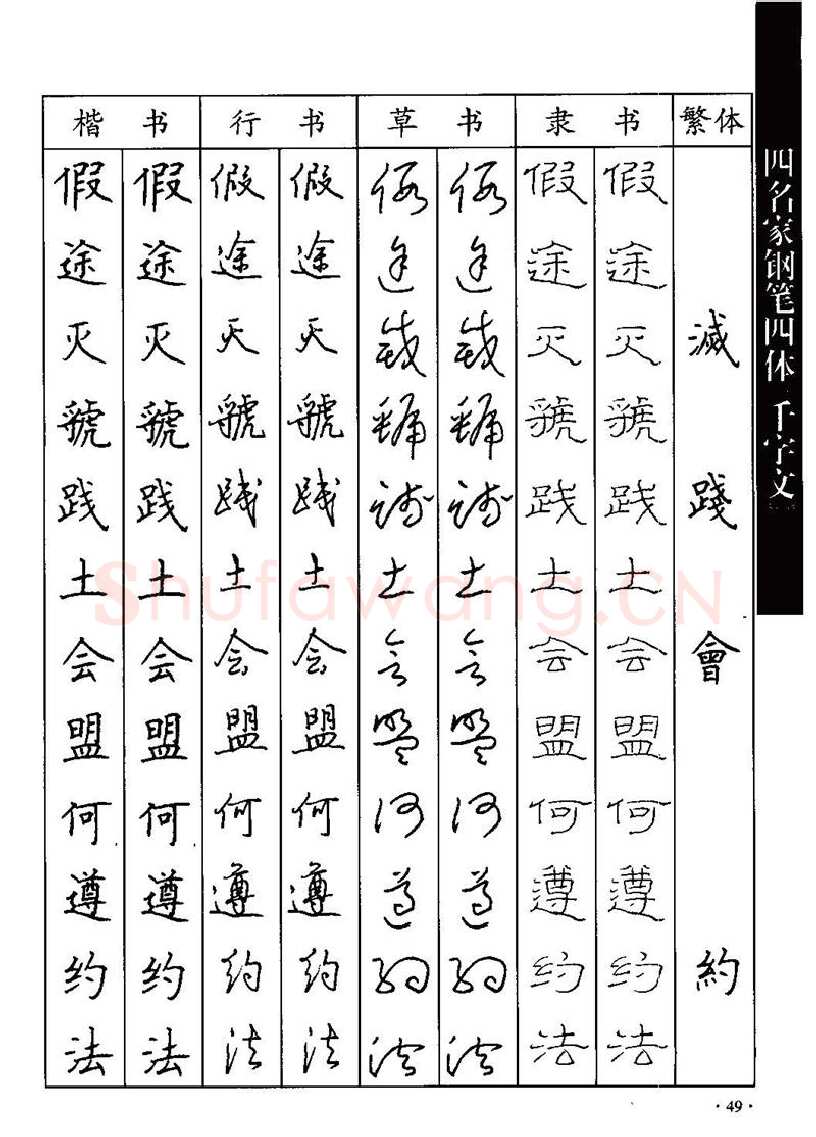 楷书 行书 草书 隶书 繁体
假 假 假 假 假 假 假 假
途 途 途 途 途 途 途 途
灭 灭 灭 灭 灭 灭 灭 灭 滅
虢 虢 虢 虢 虢 虢 虢 虢
践 践 践 践 践 践 践 践 踐
土 土 土 土 土 土 土 土
会 会 会 会 会 会 会 会 會
盟 盟 盟 盟 盟 盟 盟 盟
何 何 何 何 何 何 何 何
遵 遵 遵 遵 遵 遵 遵 遵
约 约 约 约 约 约 约 约 約
法 法 法 法 法 法 法 法
四名家钢笔四体千字文
Shufawang.CN
·49·